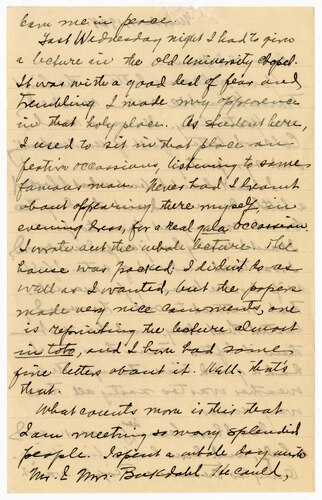 me in peace.
Last Wednesday night I had to give
a lecture in the old University
It was with a good deal of fear and
trembling I made my appearance
in that holy place. As student here,
I used to sit in that place on
festive occassions, listening to some
famous man. Never had I dreamt
about appearing there myself, in
evening dress, for a real gala occassion.
I wrote out the whole lecture. The
house was packed. I didn't do as
well as I wanted, but the papers
made very nice comments, one
is reprinting the lecture almost
in toto, and I have had some
fine letters about it. Well - that's
that.
What counts more is this that
I am meeting so many splendid
people. I spent a whole day with
Mr. & Mrs.